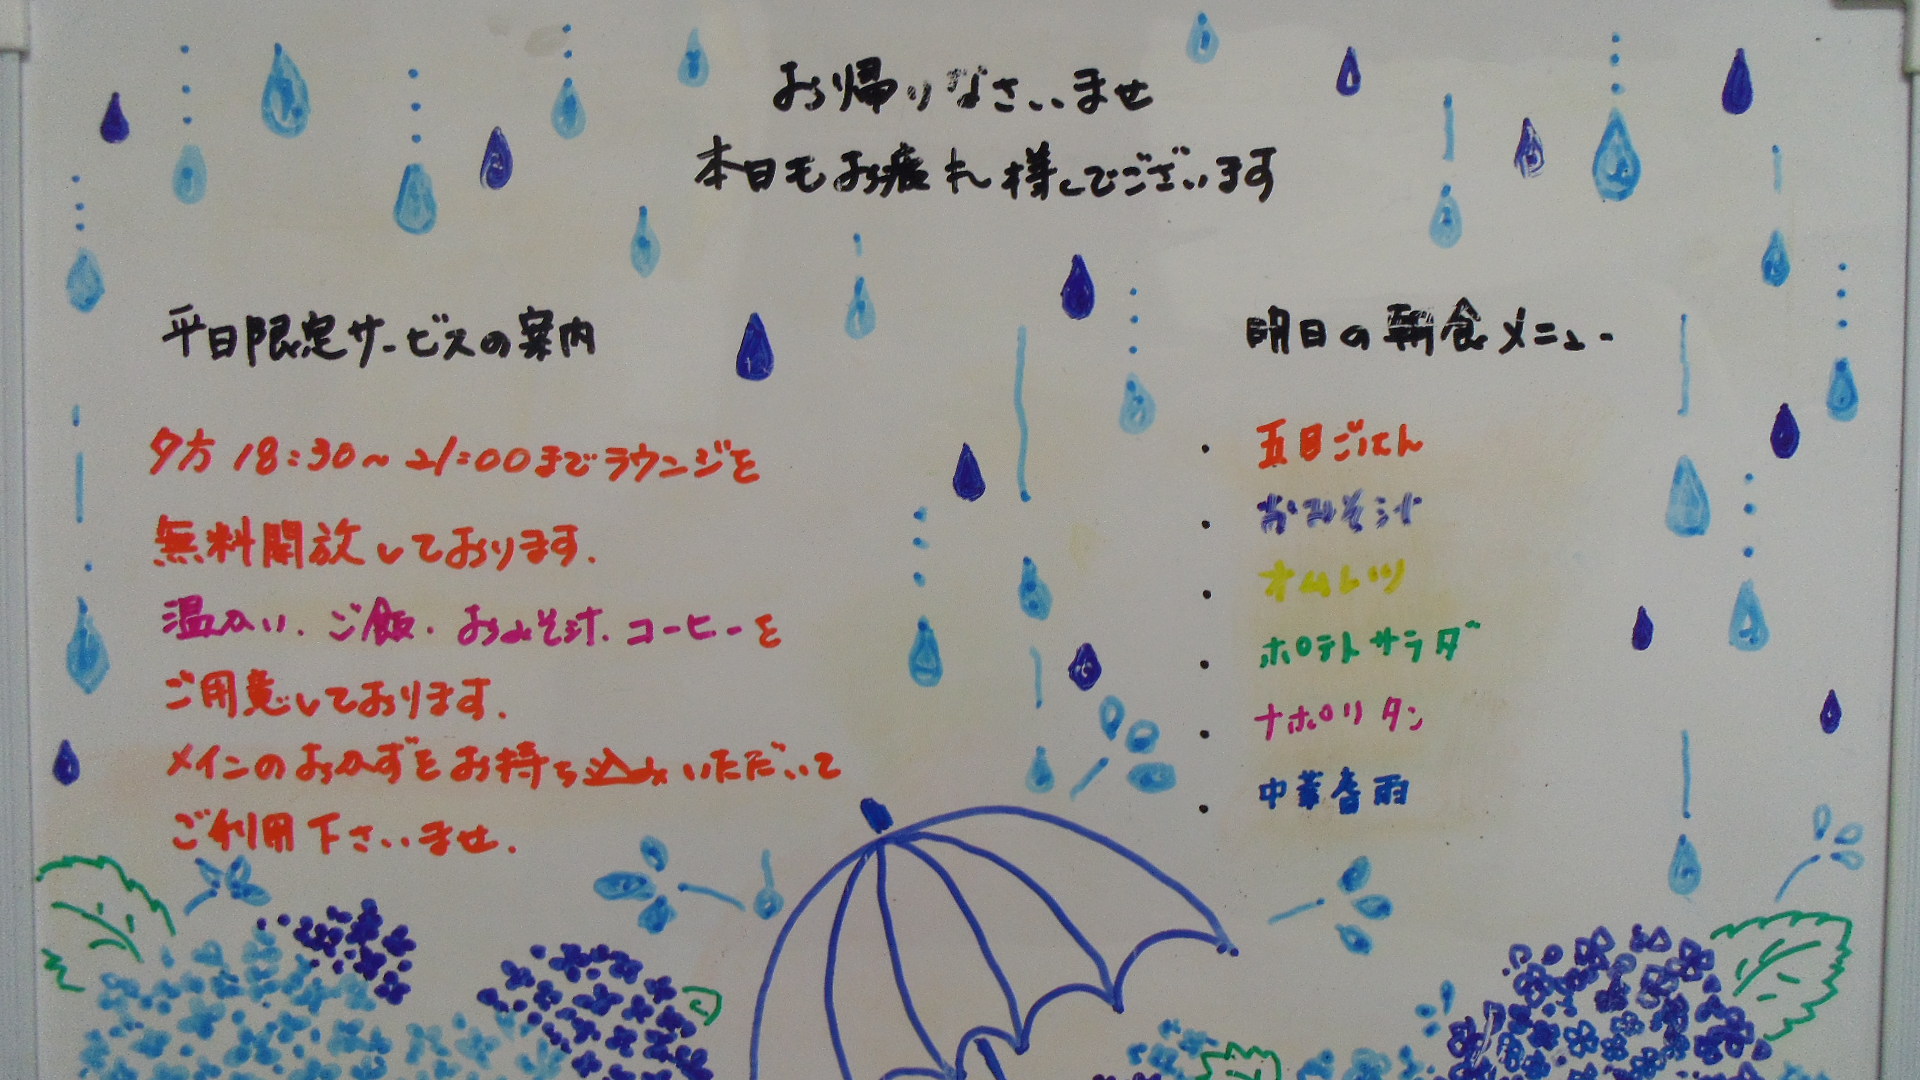 お帰りなさいませ
本日もお疲れ様でございます
平日限定サービスの案内
夕方18:30〜21:00までラウンジを
無料開放しております.
温かい.ご飯.おみそ汁.コーヒーを
ご用意しております.
メインのおかずをお持ち込みいただいて
ご利用下さいませ.
明日の朝食メニュー
・五目ごはん
・おみそ汁
・オムレツ
・ポテトサラダ
・ナポリタン
・中華春雨